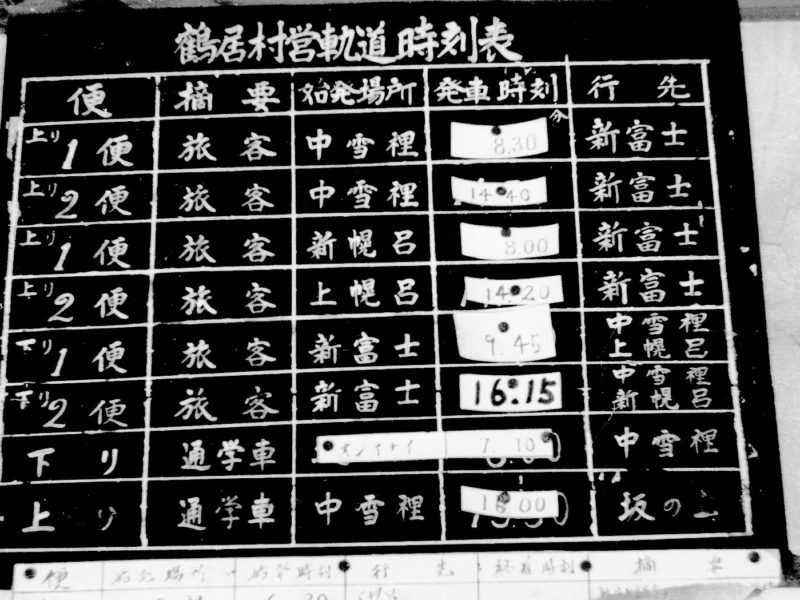 鶴居村営軌道時刻表
便 摘要 始発場所 発車時刻 行先
上り1便 旅客 中雪裡 8.30分 新富士
上り2便 旅客 中雪裡 14.40 新富士
上り1便 旅客 新幌呂 8.00 新富士
上り2便 旅客 上幌呂 14.20 新富士
下り1便 旅客 新富士 9.45 中雪裡 上幌呂
下り2便 旅客 新富士 16.15 中雪裡 新幌呂
下り 通学車 7.10 中雪裡
上り 通学車 中雪裡 16.00 坂の上
便 行先 終着時刻 摘要